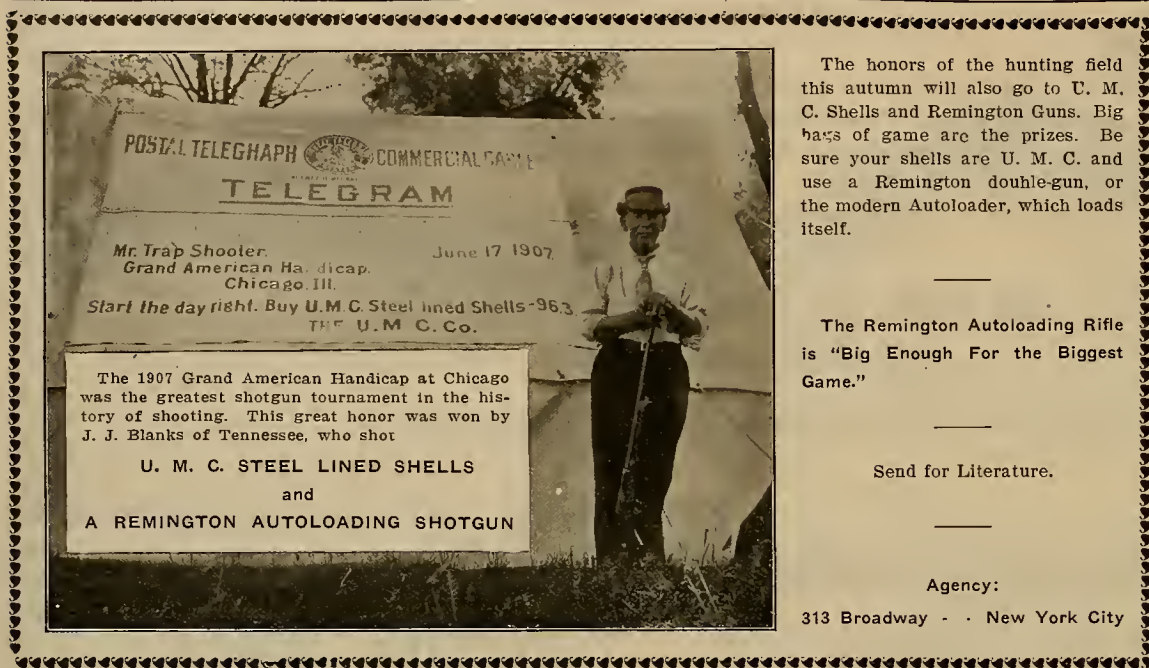 POSTAL TELEGHAPH COMMERCIAL CABLE
TELEGRAM
Mr. Trap Shooter. June 17 1907.
Grand American Ha dicap.
Chicago. Ill.
Start the day right. Buy U.M.C. Steel lined Shells-963
THE U.M C. Co.
The 1907 Grand American Handicap at Chicago
was the greatest shotgun tournament in the his-
tory of shooting. This great honor was won by
J. J. Blanks of Tennessee, who shot
U. M. C. STEEL LINED SHELLS
and
A REMINGTON AUTOLOADING SHOTGUN
The honors of the hunting field
this autumn will also go to U. M.
C. Shells and Remington Guns. Big
bags of game are the prizes. Be
sure your shells are U. M. C. and
use a Remington douhle-gun, or
the modern Autoloader, which loads
itself.
The Remington Autoloading Rifle
is "Big Enough For the Biggest
Game."
Send for Literature.
Agency:
313 Broadway - - New York City